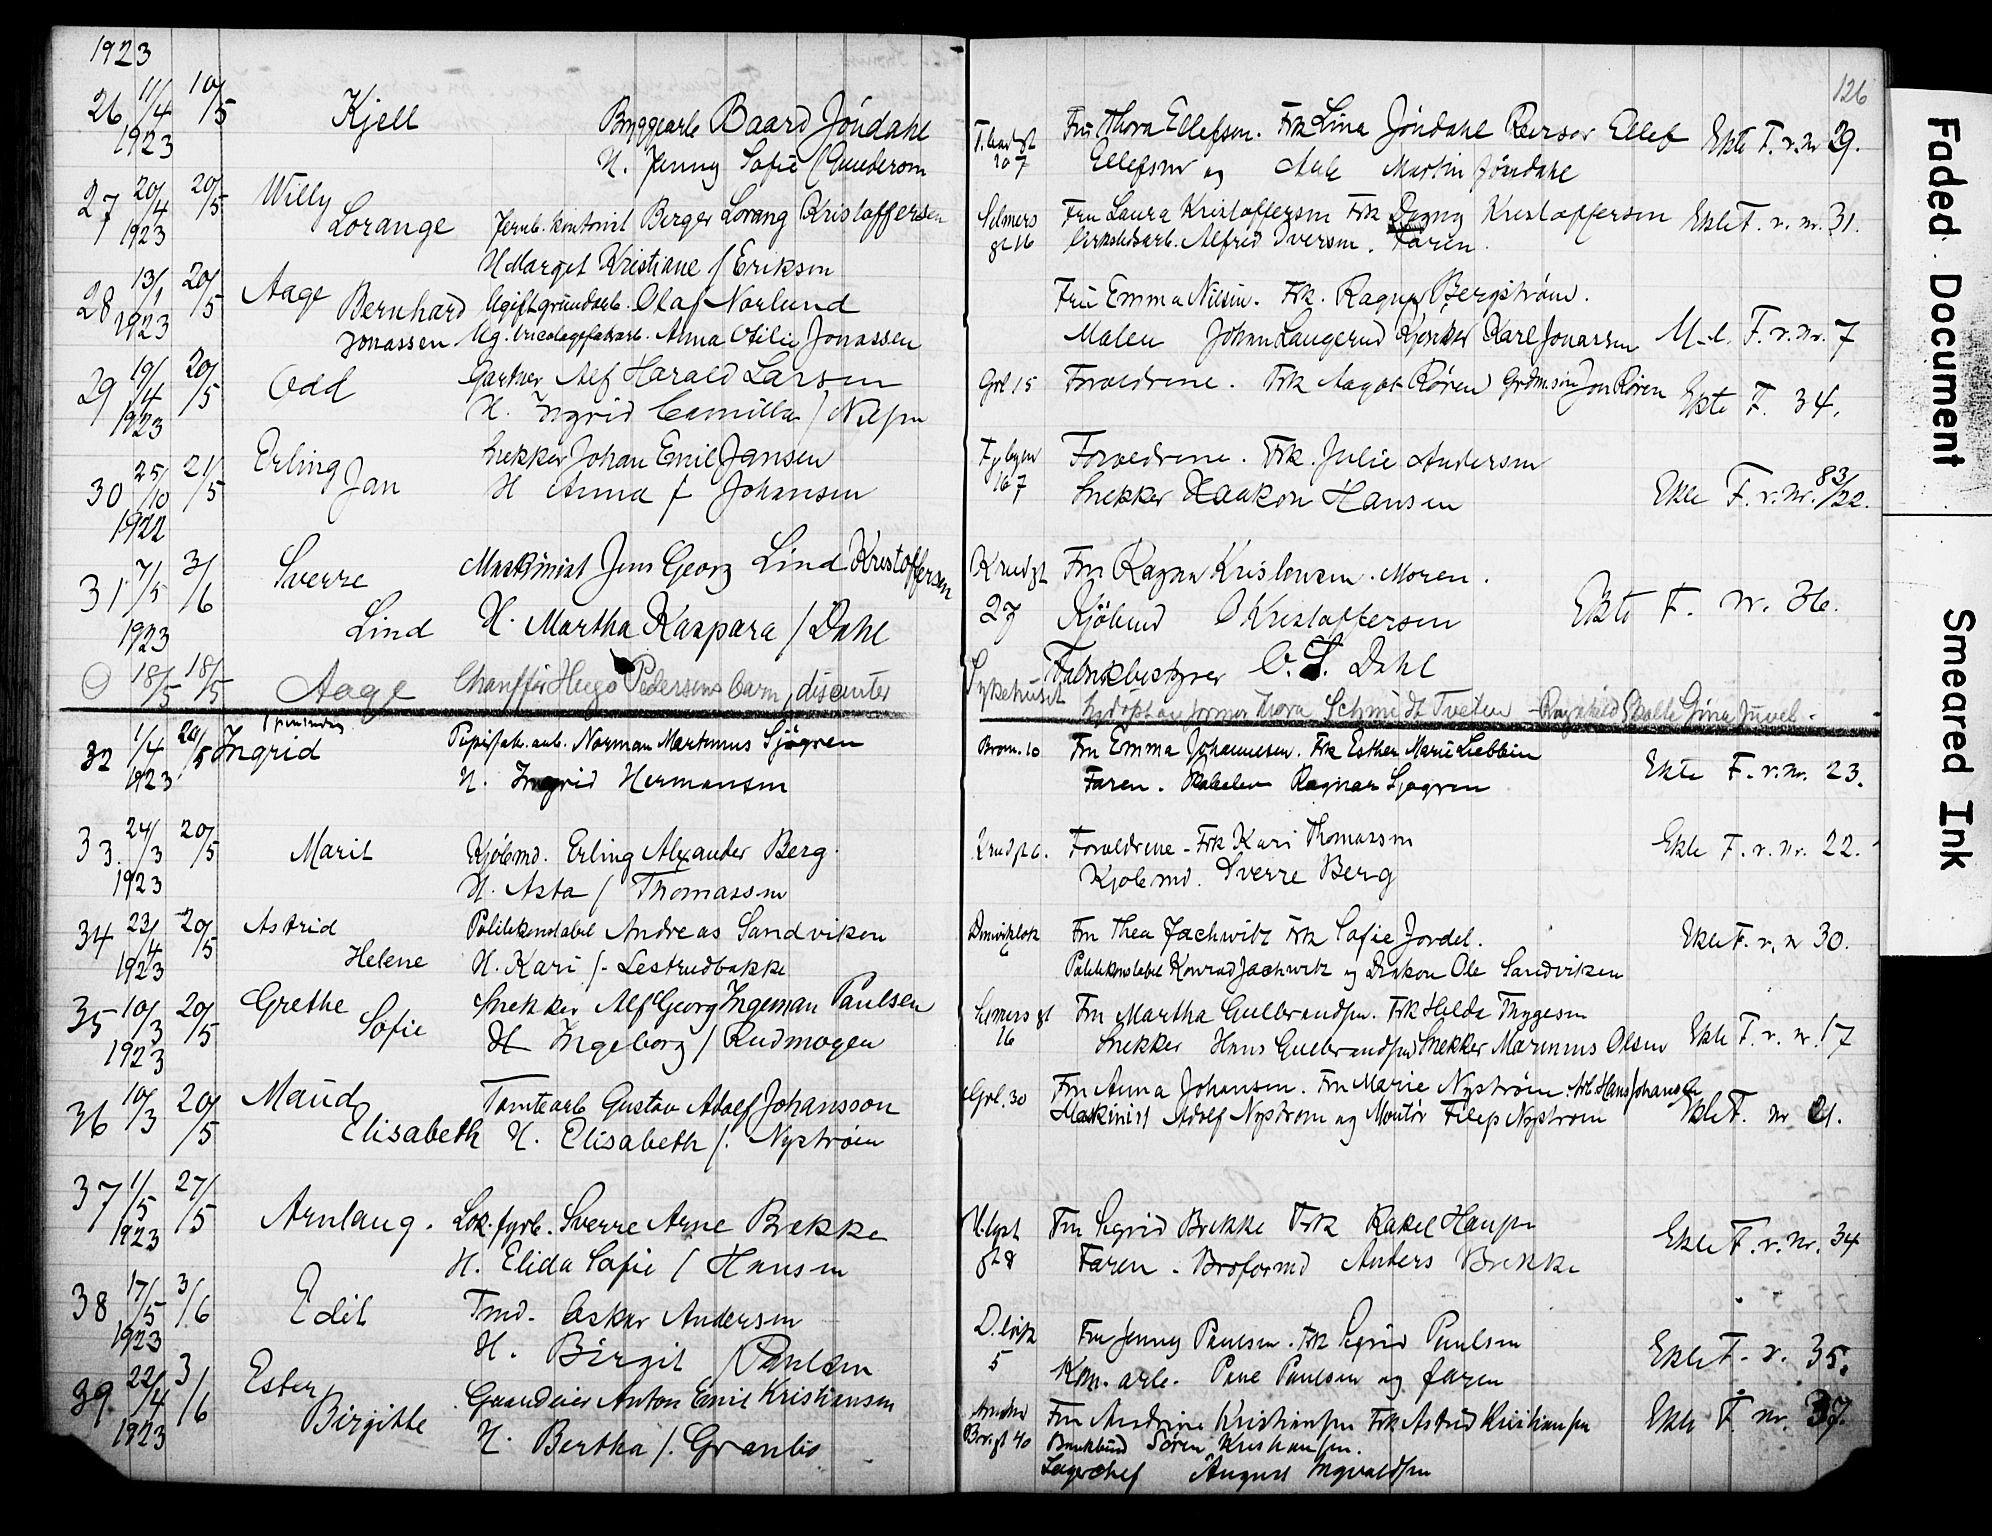 1923
126
26 11/4 1923 10/5 Kjell Byggearb Baard Jöndahl
H. Jenny Sofie / Gundersen
Fru Thora Ellefsen. Frk Lina Jöndahl Reisor Ellef
Ellefsen og Martin Jöndahl
Ekte F. r. nr 29.
27 20/4 1923 20/5 Willy Lorange
Jernb. kontorist Berger Lorang Kristoffersen
H Margit Kristiane / Eriksen
Selmers gt 16
Fru Laura Kristoffersen Frk Dagny Kristoffersen
Alfred Iversen. Faren.
Ekte F. r. nr. 31.
28 13/1 1923 20/5 Aage Bernhard Jonassen
Ugift grundarb. Olaf Norlund
Ug. tricotagefabarb. Anna Otilie Jonassen
Fru Emma Nilsen. Frk. Ragna Bergström.
Malen Johan Laugerud Karl Jonassen
F. r. nr. 7
29 19/4 1923 20/5 Odd
Gartner Alf Harald Larsen
H. Ingrid Camilla / Nilsen
Grl 15
Forældrene. Frk Aagot Rören Jon Rören
Ekte F. 34.
30 25/10 1922 21/5 Erling Jan
Snekker Johan Emil Jansen
H Anna / Johansen
16 7
Forældrene. Frk. Julie Andersen
Snekker Haakon Hansen
Ekte F. r. nr. 83/22.
31 7/5 1923 3/6 Sverre Lind
Maskinist Jens Georg Lind Kristoffersen
H. Martha Kaspara / Dahl
Knudgt 27
Fru Ragna Kristensen. Moren.
Kjölmd O Kristoffersen
Fabrikbestyrer O. S. Dahl
Ekte F. nr. 36.
18/5 18/5 Aage
Chauffør Hugo Pedersens barn, disenter
Sykehuset
hjdöpt av jormor Thora Schmidt Tveten - Ragnhild Skolte Gina Juvel.
32 1/4 1923 20/5 Ingrid
Papirfab. arb. Norman Martinius Sjögren
H. Ingrid Hermansen
Brom. 10
Fru Emma Johannesen. Frk Esther Marie Liebbin
Faren. Ragnar Sjögren
Ekte F. r. nr. 23.
33. 24/3 1923 20/5 Marit
Kjölmd. Erling Alexander Berg.
H. Asta / Thomassen
Forældrene - Frk Kari Thomassen
Kjölemd. Sverre Berg
Ekte F. r. nr. 22.
34 23/4 1923 20/5 Astrid Helene
Politikonstabel Andreas Sandviken
H. Kari / Lestrudbakke
Fru Thea Jachwitz Frk Sofie Jordel.
Politikonstabel Konrad Jachwitz og Diakon Ole Sandviken
Ekte F. r. n 30.
35 10/3 1923 20/5 Grethe Sofie
Snekker Alf Georg Ingeman Paulsen
H Ingeborg / Rudmogen
Selmers gt 16
Fru Martha Gulbrandsen. Frk Hilda Thygesen
Snekker Hans Gulbrandsen Snekker Marinius Olsen
Ekte F. r. nr. 17
36 10/3 20/5 Maud Elisabeth
Tomtearb Gustav Adolf Johansson
H. Elisabeth /. Nyström
Grl. 30
Fru Anna Johansen. Fru Marie Nyström. Arb. Hans Johansen
Maskinist Adolf Nyström og Montör Filip Nyström
Ekte F. nr 21.
37 1/5 1923 27/5 Arnlaug.
Lok. fyrb. Sverre Arne Brekke
H. Elida Sofie / Hansen
gt 8
Fru Sigrid Brekke Frk Rakel Hansen
Faren. Broformd Anders Brekke
Ekte F. r. nr. 34
38 17/5 1923 3/6 Edit
Tmd. Oskar Andersen
H. Birgit / Paulsen
5
Fru Jenny Paulsen. Frk Sigrid Paulsen
Kom. arb. Paulsen og faren
Ekte F. r. 35.
39. 22/4 1923 3/6 Ester Birgitte
Gaardeier Anton Emil Kristiansen
H. Bertha /. Granbo
gt 40
Fru Andrine Kristiansen Frk Astrid Kristiansen
Sören Kristiansen.
Lagerchef August Ingvaldsen
Ekte F. nr. 37.
Faded Document
Smeared Ink